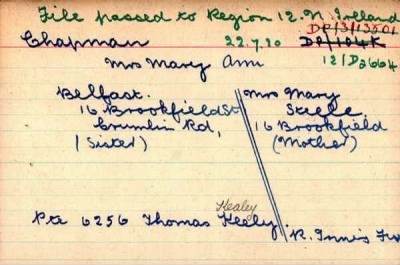 File passed to Region 12. N. Ireland
DP/3/13501
Chapman 22.7.20 DP/104K
Mrs Mary Ann 12/D3664
Belfast.
16 Brookfield St
Crumlin Rd,
(Sister)
Mrs Mary
Steele
16 Brookfield
(Mother)
Kealey
Pte 6256 Thomas Keely. R. Innis Fus